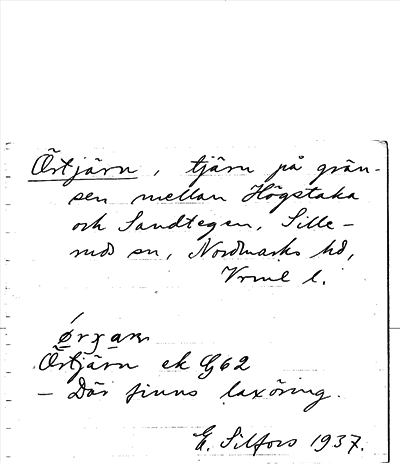 Örtjärn, tjärn på grän-
sen mellan Högstaka
och Sandtegen, Sille-
rud sn, Nordmarks hd,
Vrml l.
Örtjärn ek G62
– Där finns laxöring.
E. Silfors 1937.